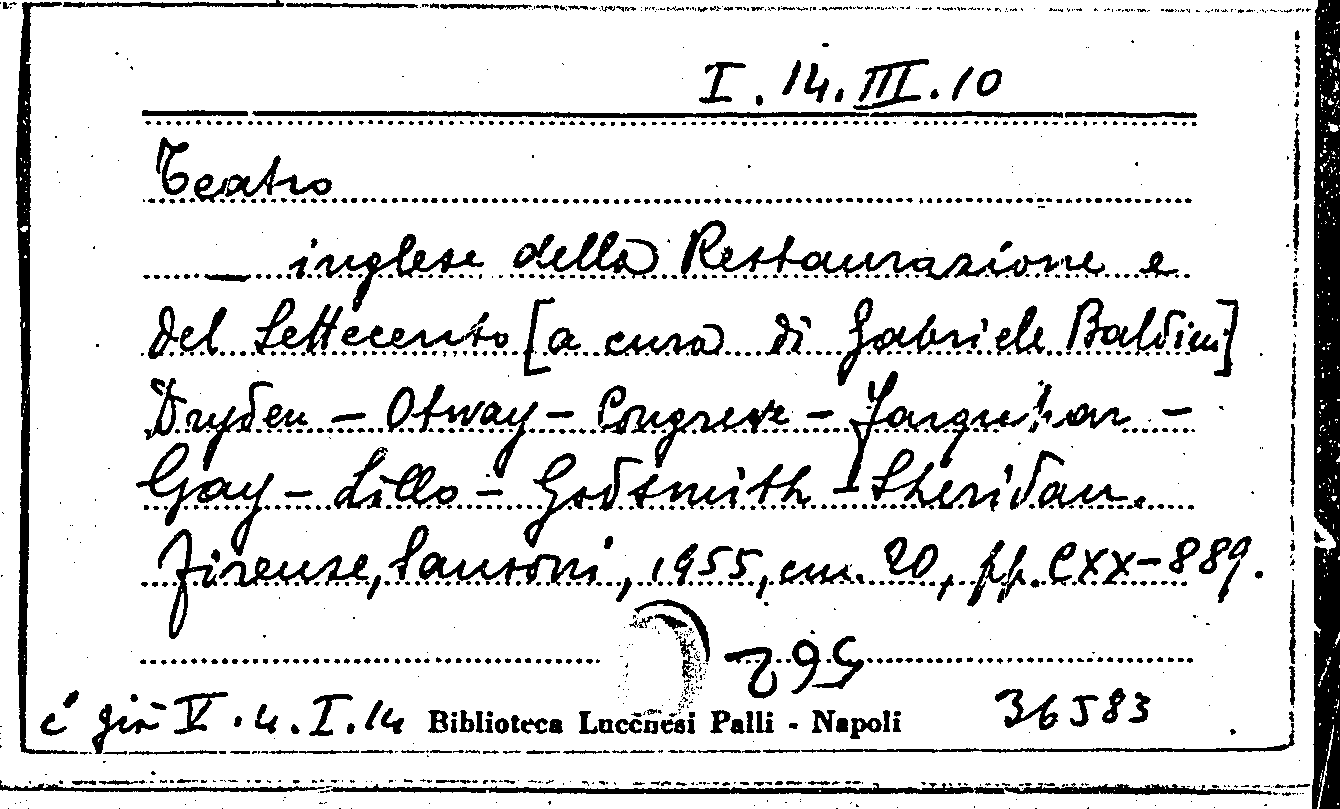 I.14.III.10
Teatro
_ inglese della Restaurazione e
del Settecento [a cura di Gabriele Baldini]
Dryden - Otway - Congreve - Farquhar -
Gay - Lillo - Godsmith - Sheridan.
Firenze, Sansoni, 1955, cm. 20, pp. CXX-889.
295
è già V.4.I.14 Biblioteca Lucchesi Palli - Napoli 36583